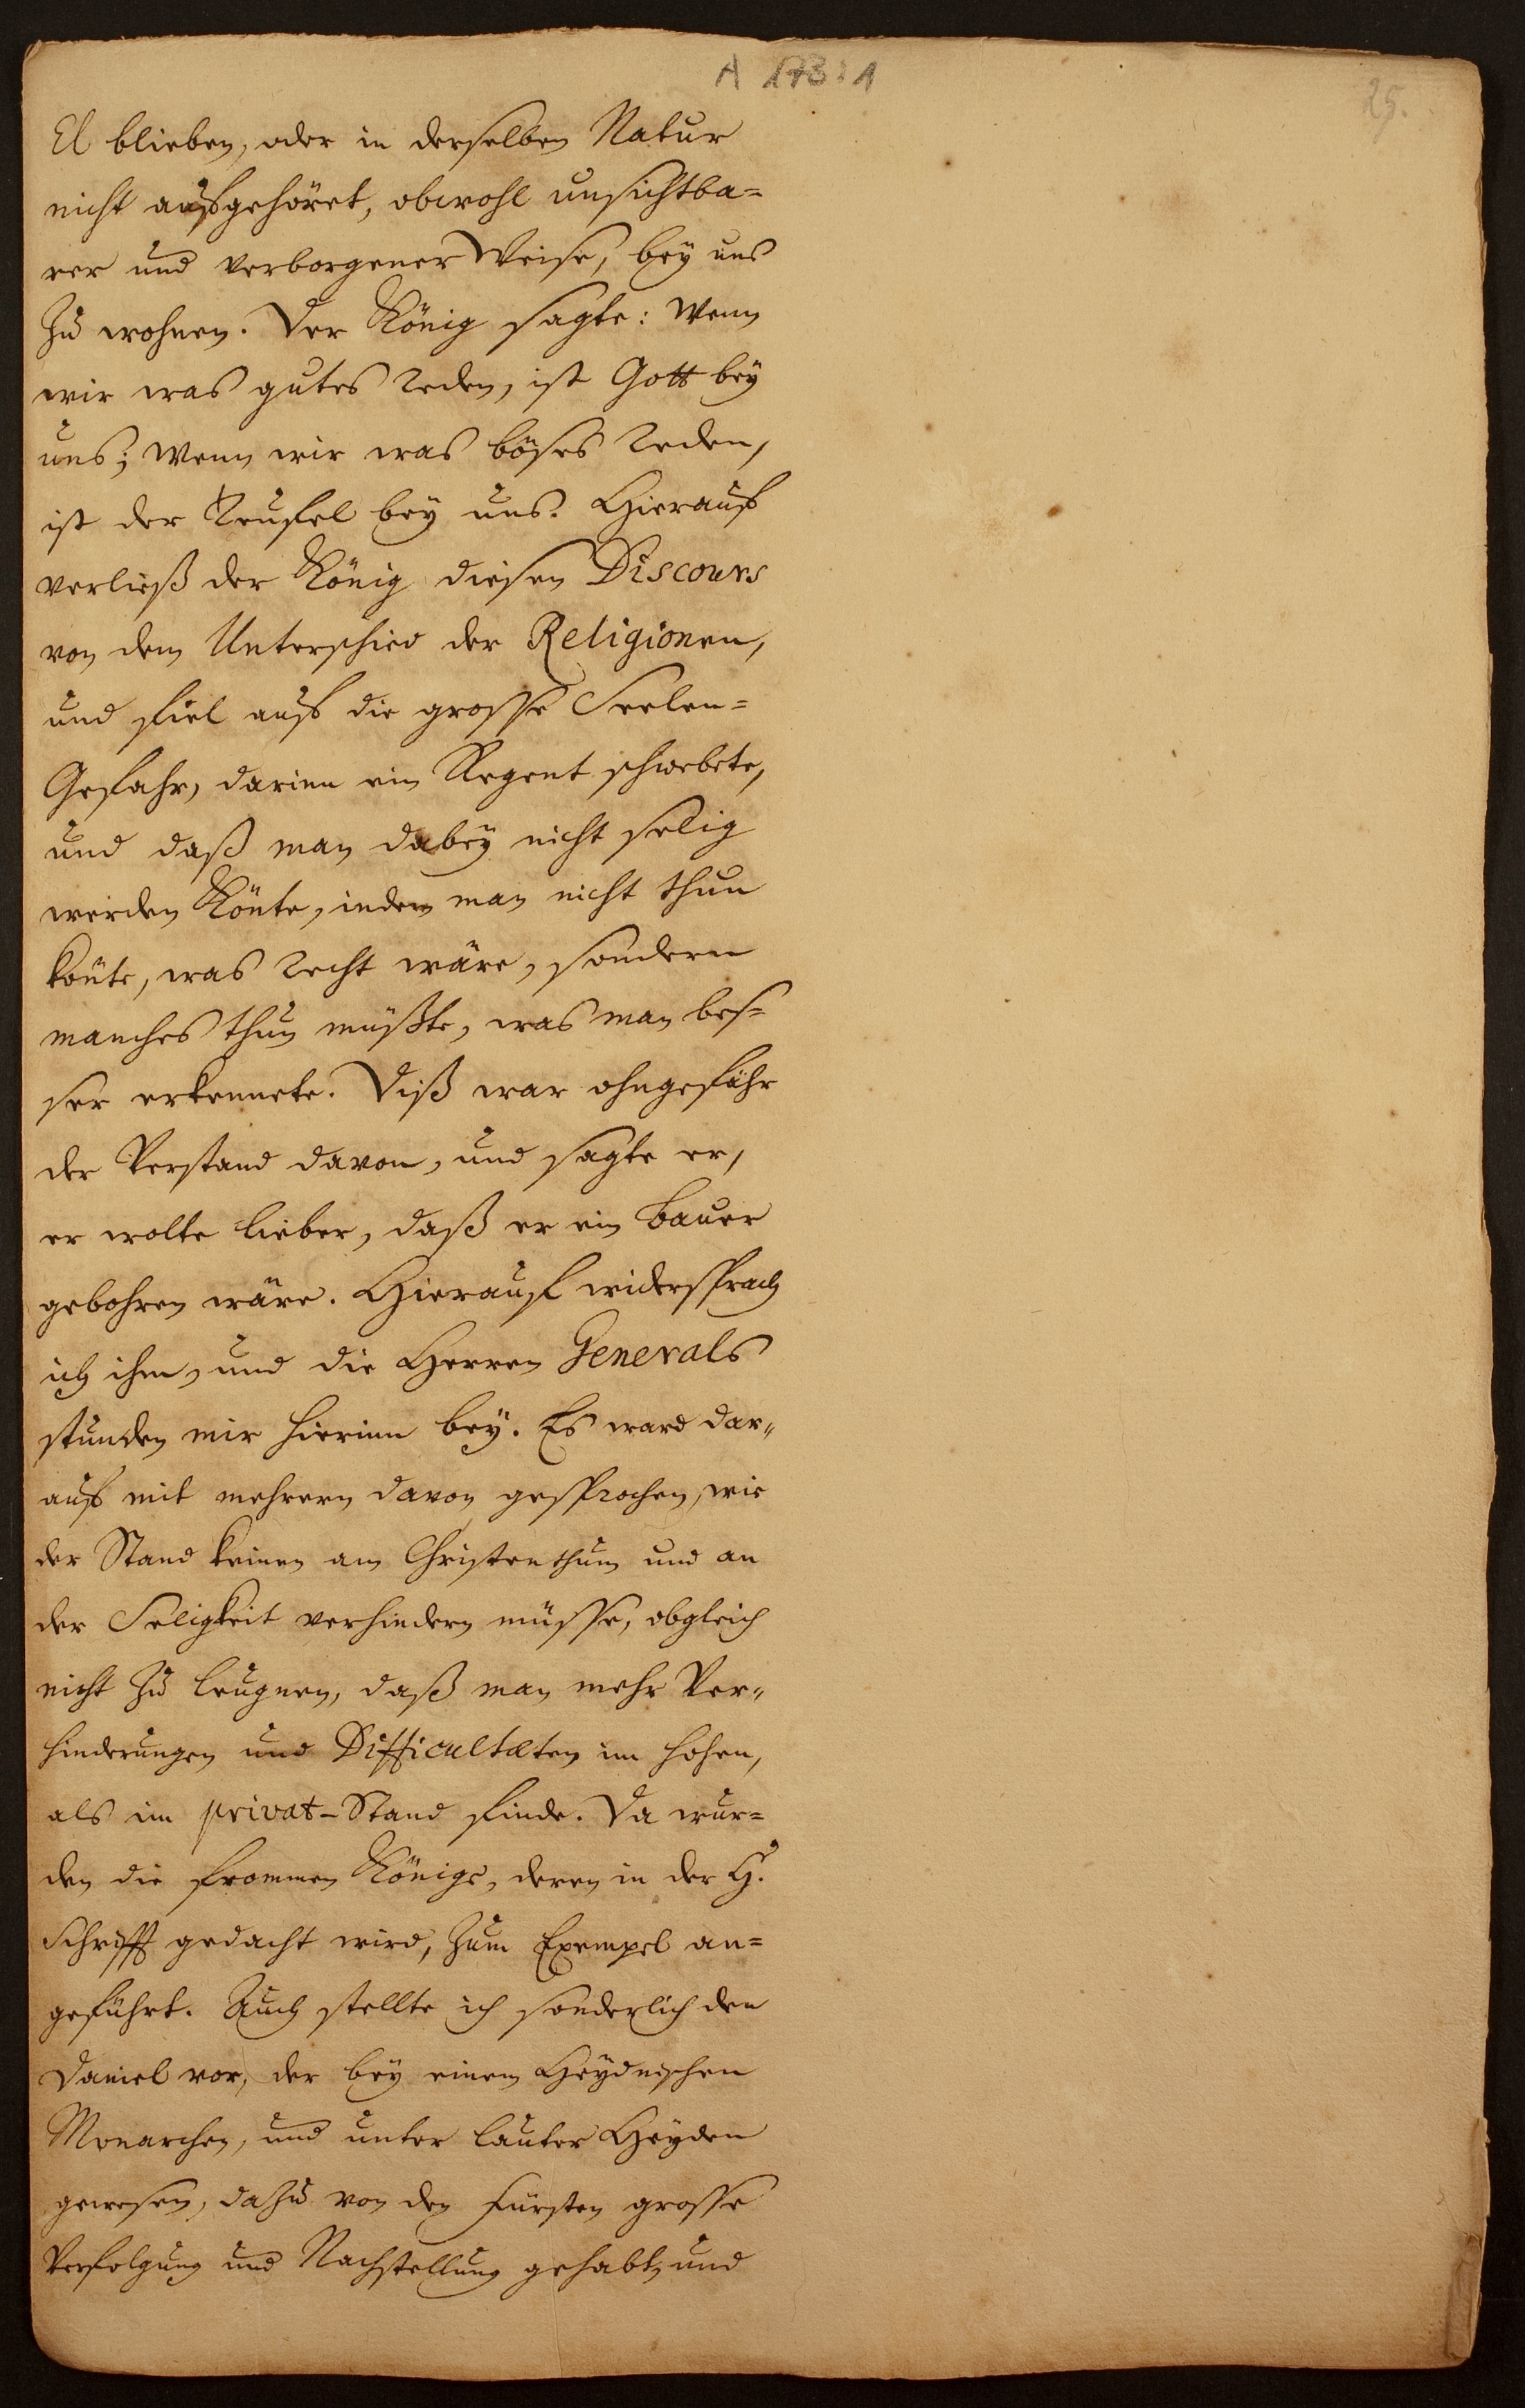 A 173:1
25.
El blieben, oder in derselben Natur
nicht aufgehöret, obwohl unsichtba=
rer und verborgener Weise, bey uns
zu wohnen. Der König sagte: Wenn
wir was gutes reden, ist Gott bey
uns; wenn wir was böses reden,
ist der Teufel bey uns. Hierauf
verließ der König diesen Discours
von dem Unterschied der Religionen,
und fiel auf die grosse Seelen=
Gefahr, darinn ein Regent schwebete,
und daß man dabey nicht selig
werden könte, indem man nicht thun
könte, was recht wäre, sondern
manches thun müßte, was man bes=
ser erkennete. Diß war ohngefähr
der Verstand davon, und sagte er,
er wolte lieber, daß er ein Bauer
gebohren wäre. Hierauf widersprach
ich ihm, und die Herren Generals
stunden mir hierinn bey. Es ward dar„
auf mit mehrern davon gesprochen, wie
der Stand keinen am Christenthum und an
der Seligkeit verhindern müsse, obgleich
nicht zu leugnen, daß man mehr Ver„
hinderungen und Difficultæten im hohen,
als im privat-Stand finde. Da wur=
den die frommen Könige, deren in der H.
Schrifft gedacht wird, zum Exempel an=
geführt. Auch stellte ich sonderlich den
Daniel vor, der bey einem Heydnischen
Monarchen, und unter lauter Heyden
gewesen, dazu von den Fürsten grosse
Verfolgung und Nachstellung gehabt, und